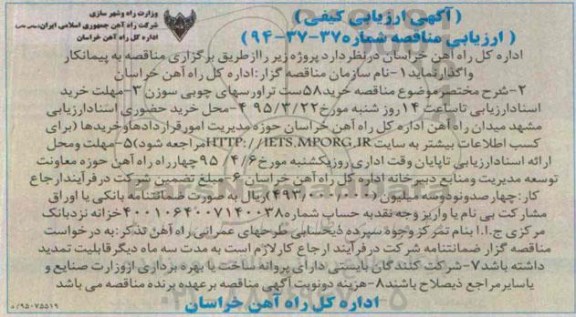 وزارت راه وشهر سازی
شرکت راه آهن جمهوری اسلامی ایران
اداره کل راه آهن خراسان
(آگهی ارزیابی کیفی)
( ارزیابی مناقصه شماره ۳۷-۳۷-۹۴)
اداره کل راه آهن خراسان درنظردارد پروژه زیر را ازطریق برگزاری مناقصه به پیمانکار
واگذارنماید ۱-نام سازمان مناقصه گزار: اداره کل راه آهن خراسان
۲-شرح مختصر موضوع مناقصه خرید ۵۸ ست تراورسهای چوبی سوزن ۳-مهلت خرید
اسنادارزیابی تاساعت ۱۴ روز شنبه مورخ ۹۵/۳/۲۲ ۴-محل خرید حضوری اسنادارزیابی
مشهد میدان راه آهن اداره کل راه آهن خراسان حوزه مدیریت امورقراردادهاوخریدها (برای
کسب اطلاعات بیشتر به سایت HTTP://IETS.MPORG.IR مراجعه شود) ۵-مهلت ومحل
ارائه اسنادارزیابی تاپایان وقت اداری روزیکشنبه مورخ ۹۵/۴/۶ چهارراه راه آهن حوزه معاونت
توسعه مدیریت ومنابع دبیرخانه اداره کل راه آهن خراسان ۶-مبلغ تضمین شرکت در فرآیندارجاع
کار: چهارصدونودوسه میلیون (۴۹۳/۰۰۰/۰۰۰) ریال به صورت ضمانتنامه بانکی یا اوراق
مشارکت بی نام یا واریز وجه نقدبه حساب شماره ۴۰۰۱۰۶۴۰۰۷۱۴۰۰۳۸ خزانه نزدبانک
مرکزی ج.ا.ا بنام تمرکز وجوه سپرده ذیحسابی طرحهای عمرانی راه آهن تذکر: به درخواست
مناقصه گزار ضمانتنامه شرکت در فرآیند ارجاع کارلازم است به مدت سه ماه دیگر قابلیت تمدید
داشته باشد ۷-شرکت کنندگان بایستی دارای پروانه ساخت یا بهره برداری ازوزارت صنایع و
یاسایرمراجع ذیصلاح باشند ۸-هزینه دونوبت آگهی مناقصه برعهده برنده مناقصه می باشد
اداره کل راه آهن خراسان
۹۵۰۷۵۵۱۹/م